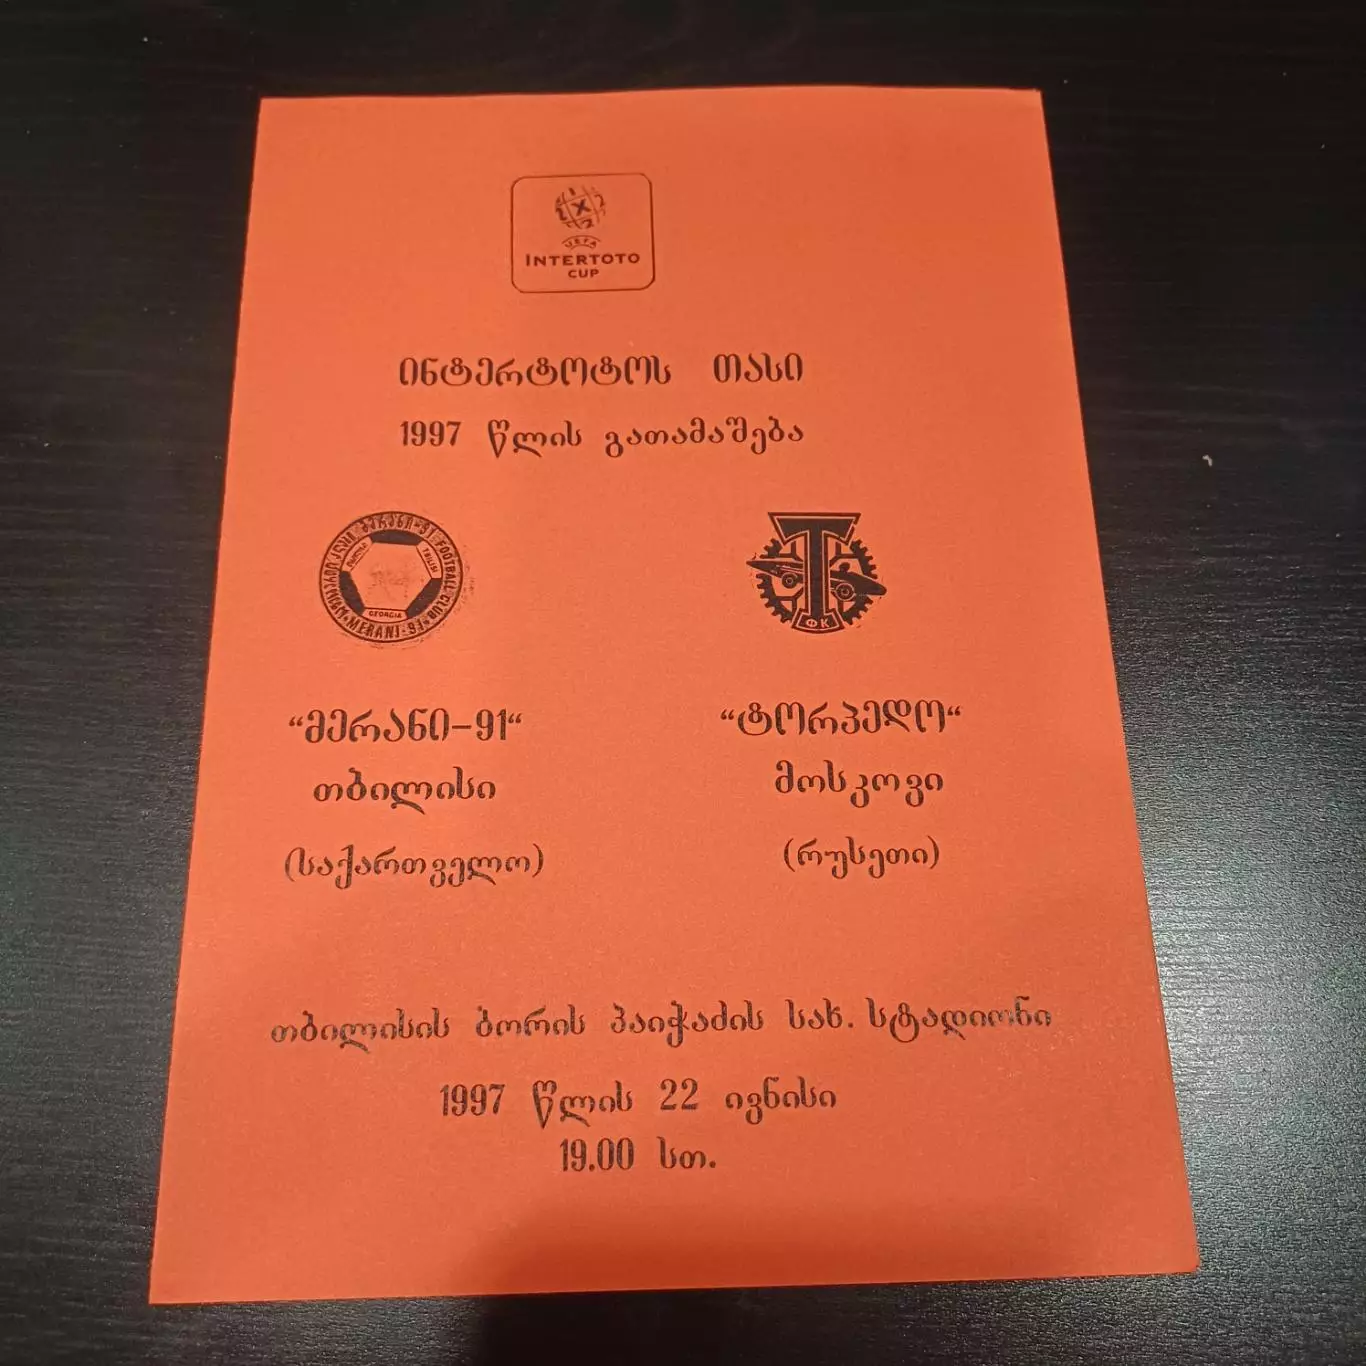 UEFA
INTERTOTO
CUP
ინტერტოტოს თასი
1997 წლის გათამაშება
მერანი-91 FOOTBALL CLUB
TBILISI
GEORGIA
"MERANI-91"
Т
ФК
“მერანი-91“
“ტორპედო“
თბილისი
მოსკოვი
(საქართველო)
(რუსეთი)
თბილისის ბორის პაიჭაძის სახ. სტადიონი
1997 წლის 22 ივნისი
19.00 სთ.